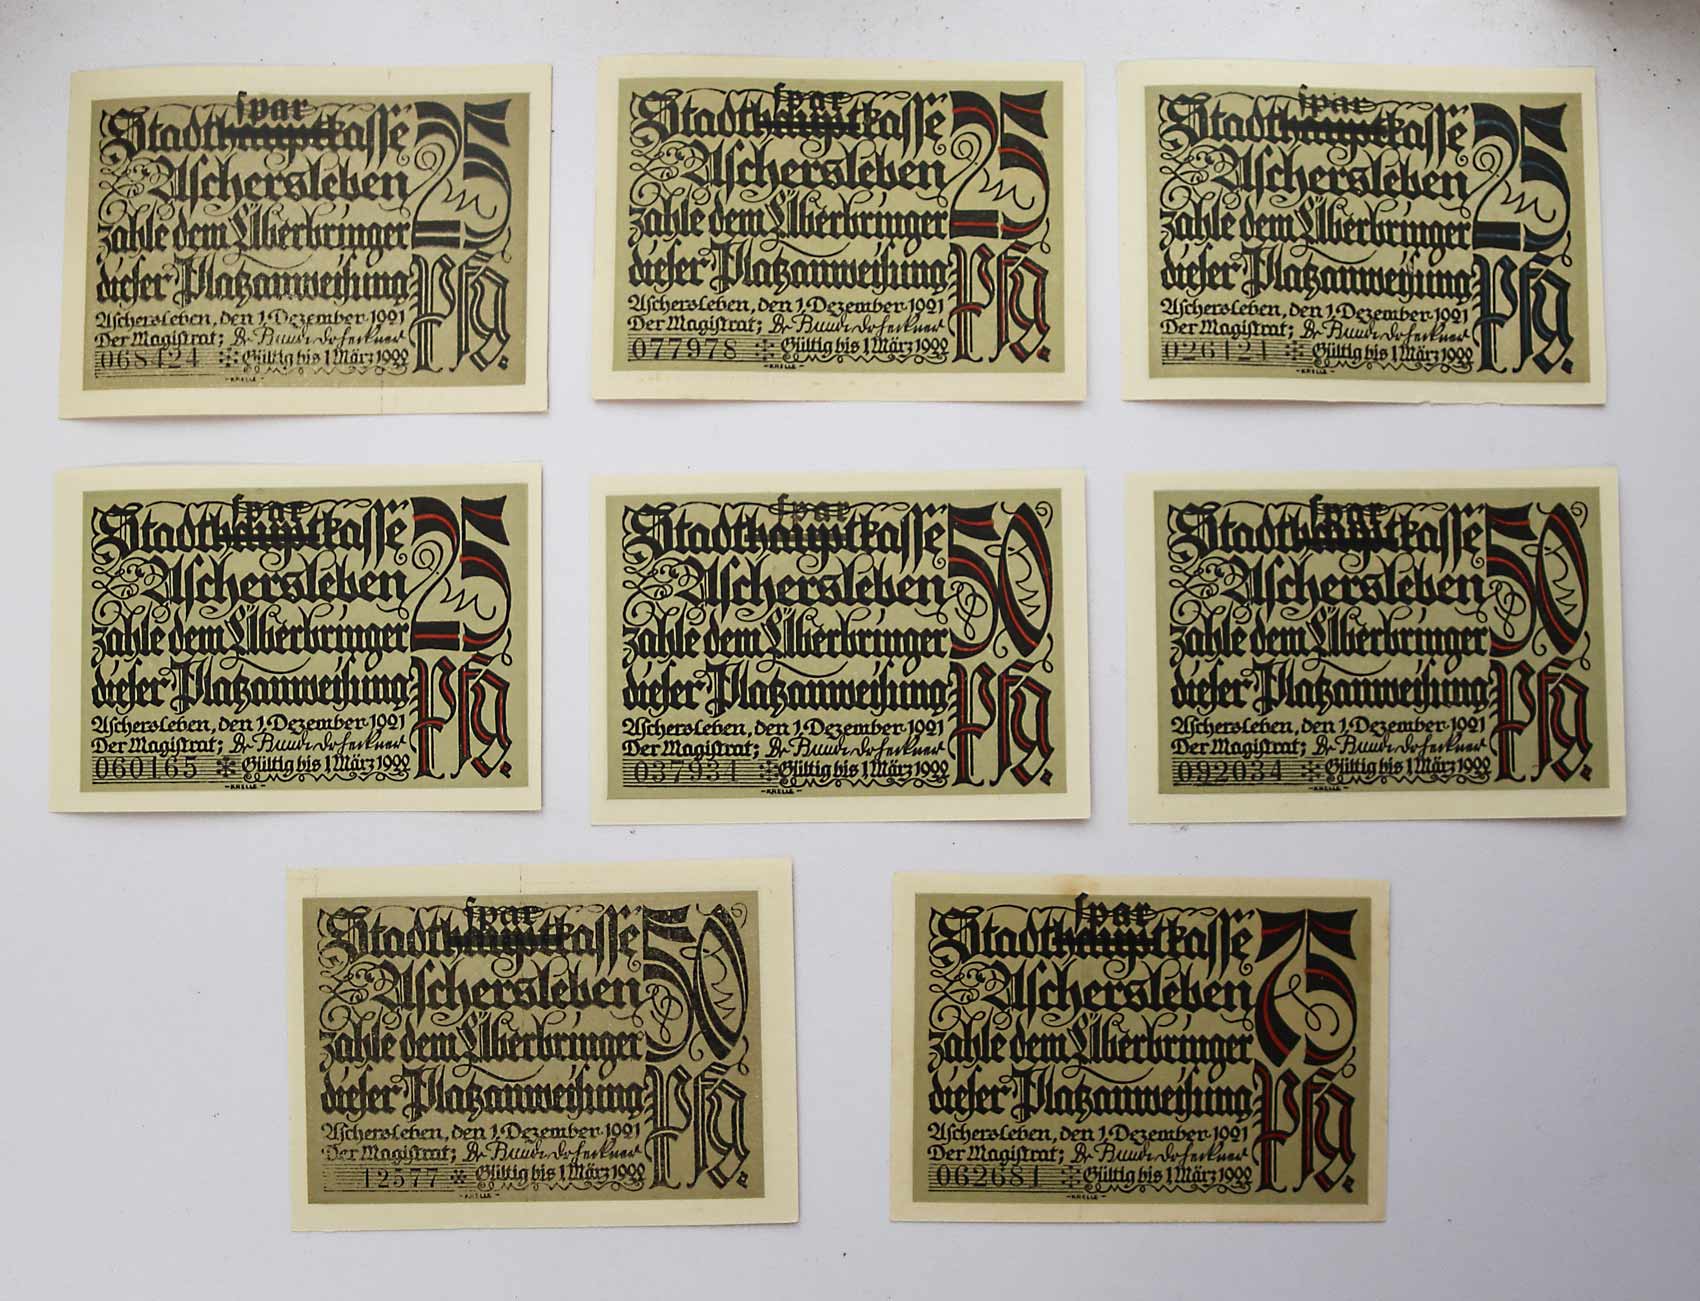 spar
Stadthauptkasse 25
Aschersleben
zahle dem Überbringer
dieser Platzanweisung Pfg.
Aschersleben, den 1. Dezember 1921
Der Magistrat;
068424 Gültig bis 1. März 1922
-KRELLE-
spar
Stadthauptkasse 25
Aschersleben
zahle dem Überbringer
dieser Platzanweisung Pfg.
Aschersleben, den 1. Dezember 1921
Der Magistrat;
077978 Gültig bis 1. März 1922
-KRELLE-
spar
Stadthauptkasse 25
Aschersleben
zahle dem Überbringer
dieser Platzanweisung Pfg.
Aschersleben, den 1. Dezember 1921
Der Magistrat;
026121 Gültig bis 1. März 1922
-KRELLE-
spar
Stadthauptkasse 25
Aschersleben
zahle dem Überbringer
dieser Platzanweisung Pfg.
Aschersleben, den 1. Dezember 1921
Der Magistrat;
060165 Gültig bis 1. März 1922
-KRELLE-
spar
Stadthauptkasse 50
Aschersleben
zahle dem Überbringer
dieser Platzanweisung Pfg.
Aschersleben, den 1. Dezember 1921
Der Magistrat;
037931 Gültig bis 1. März 1922
-KRELLE-
spar
Stadthauptkasse 50
Aschersleben
zahle dem Überbringer
dieser Platzanweisung Pfg.
Aschersleben, den 1. Dezember 1921
Der Magistrat;
092034 Gültig bis 1. März 1922
-KRELLE-
spar
Stadthauptkasse 50
Aschersleben
zahle dem Überbringer
dieser Platzanweisung Pfg.
Aschersleben, den 1. Dezember 1921
Der Magistrat;
12577 Gültig bis 1. März 1922
-KRELLE-
spar
Stadthauptkasse 75
Aschersleben
zahle dem Überbringer
dieser Platzanweisung Pfg.
Aschersleben, den 1. Dezember 1921
Der Magistrat;
062681 Gültig bis 1. März 1922
-KRELLE-